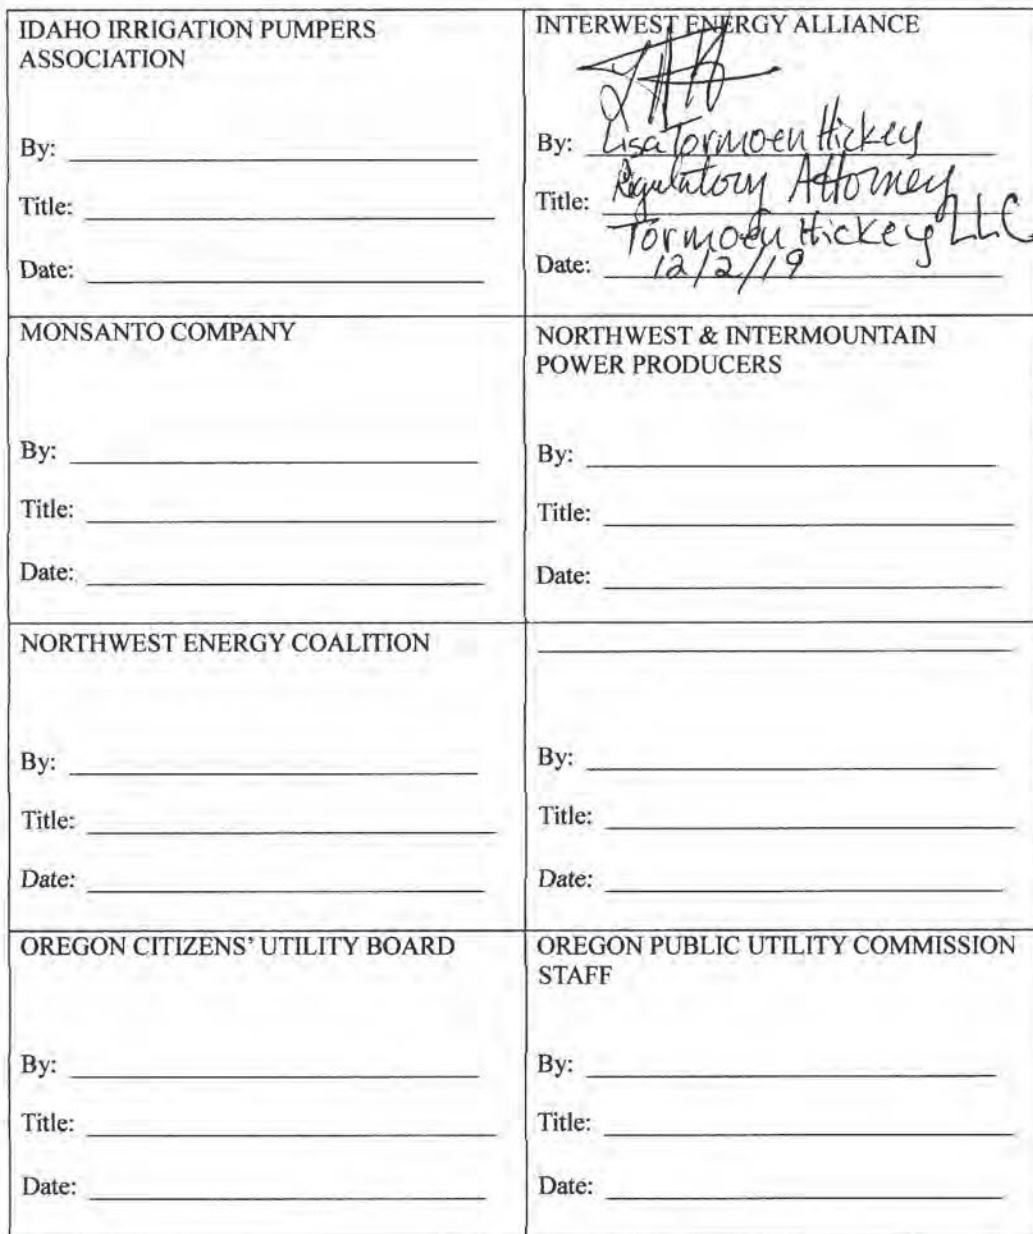 IDAHO IRRIGATION PUMPERS
ASSOCIATION
By:
Title:
Date:
INTERWEST ENERGY ALLIANCE
By: Lisa Tormoen Hickey
Title: Regulatory Attorney
Tormoen Hickey LLC
Date: 12/2/19
MONSANTO COMPANY
By:
Title:
Date:
NORTHWEST & INTERMOUNTAIN
POWER PRODUCERS
By:
Title:
Date:
NORTHWEST ENERGY COALITION
By:
Title:
Date:
By:
Title:
Date:
OREGON CITIZENS' UTILITY BOARD
By:
Title:
Date:
OREGON PUBLIC UTILITY COMMISSION
STAFF
By:
Title:
Date: